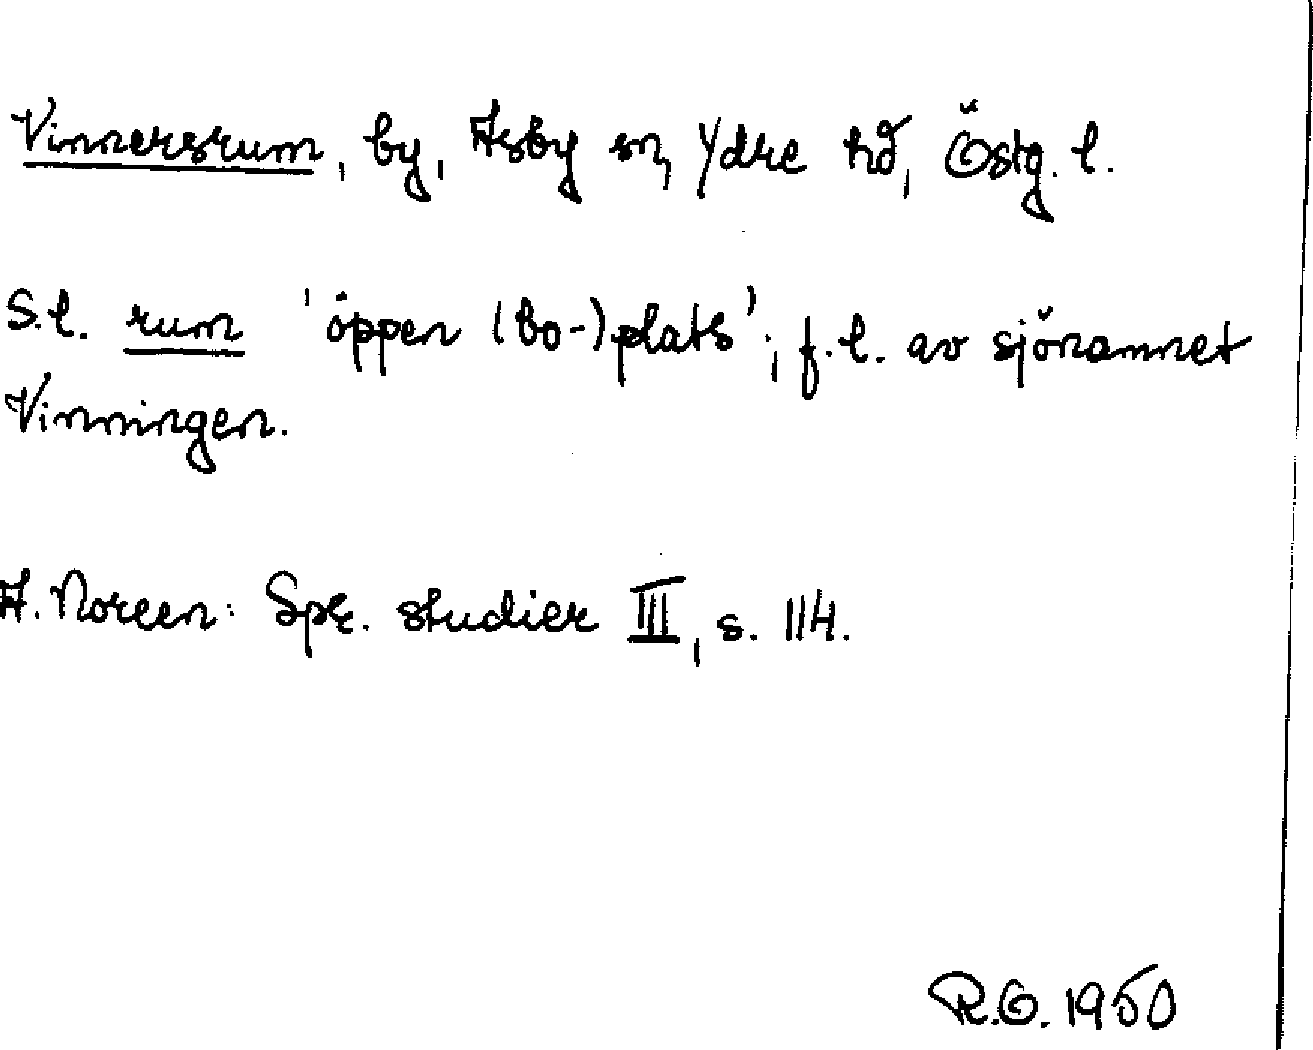 Vinnersrum, by, Asby sn, Ydre hd, Östg. l.
S.l. rum 'öppen (bo-)plats'; f.l. av sjönamnet
Vinningen.
A. Noreen: Spr. studier III, s. 114.
R.O. 1950